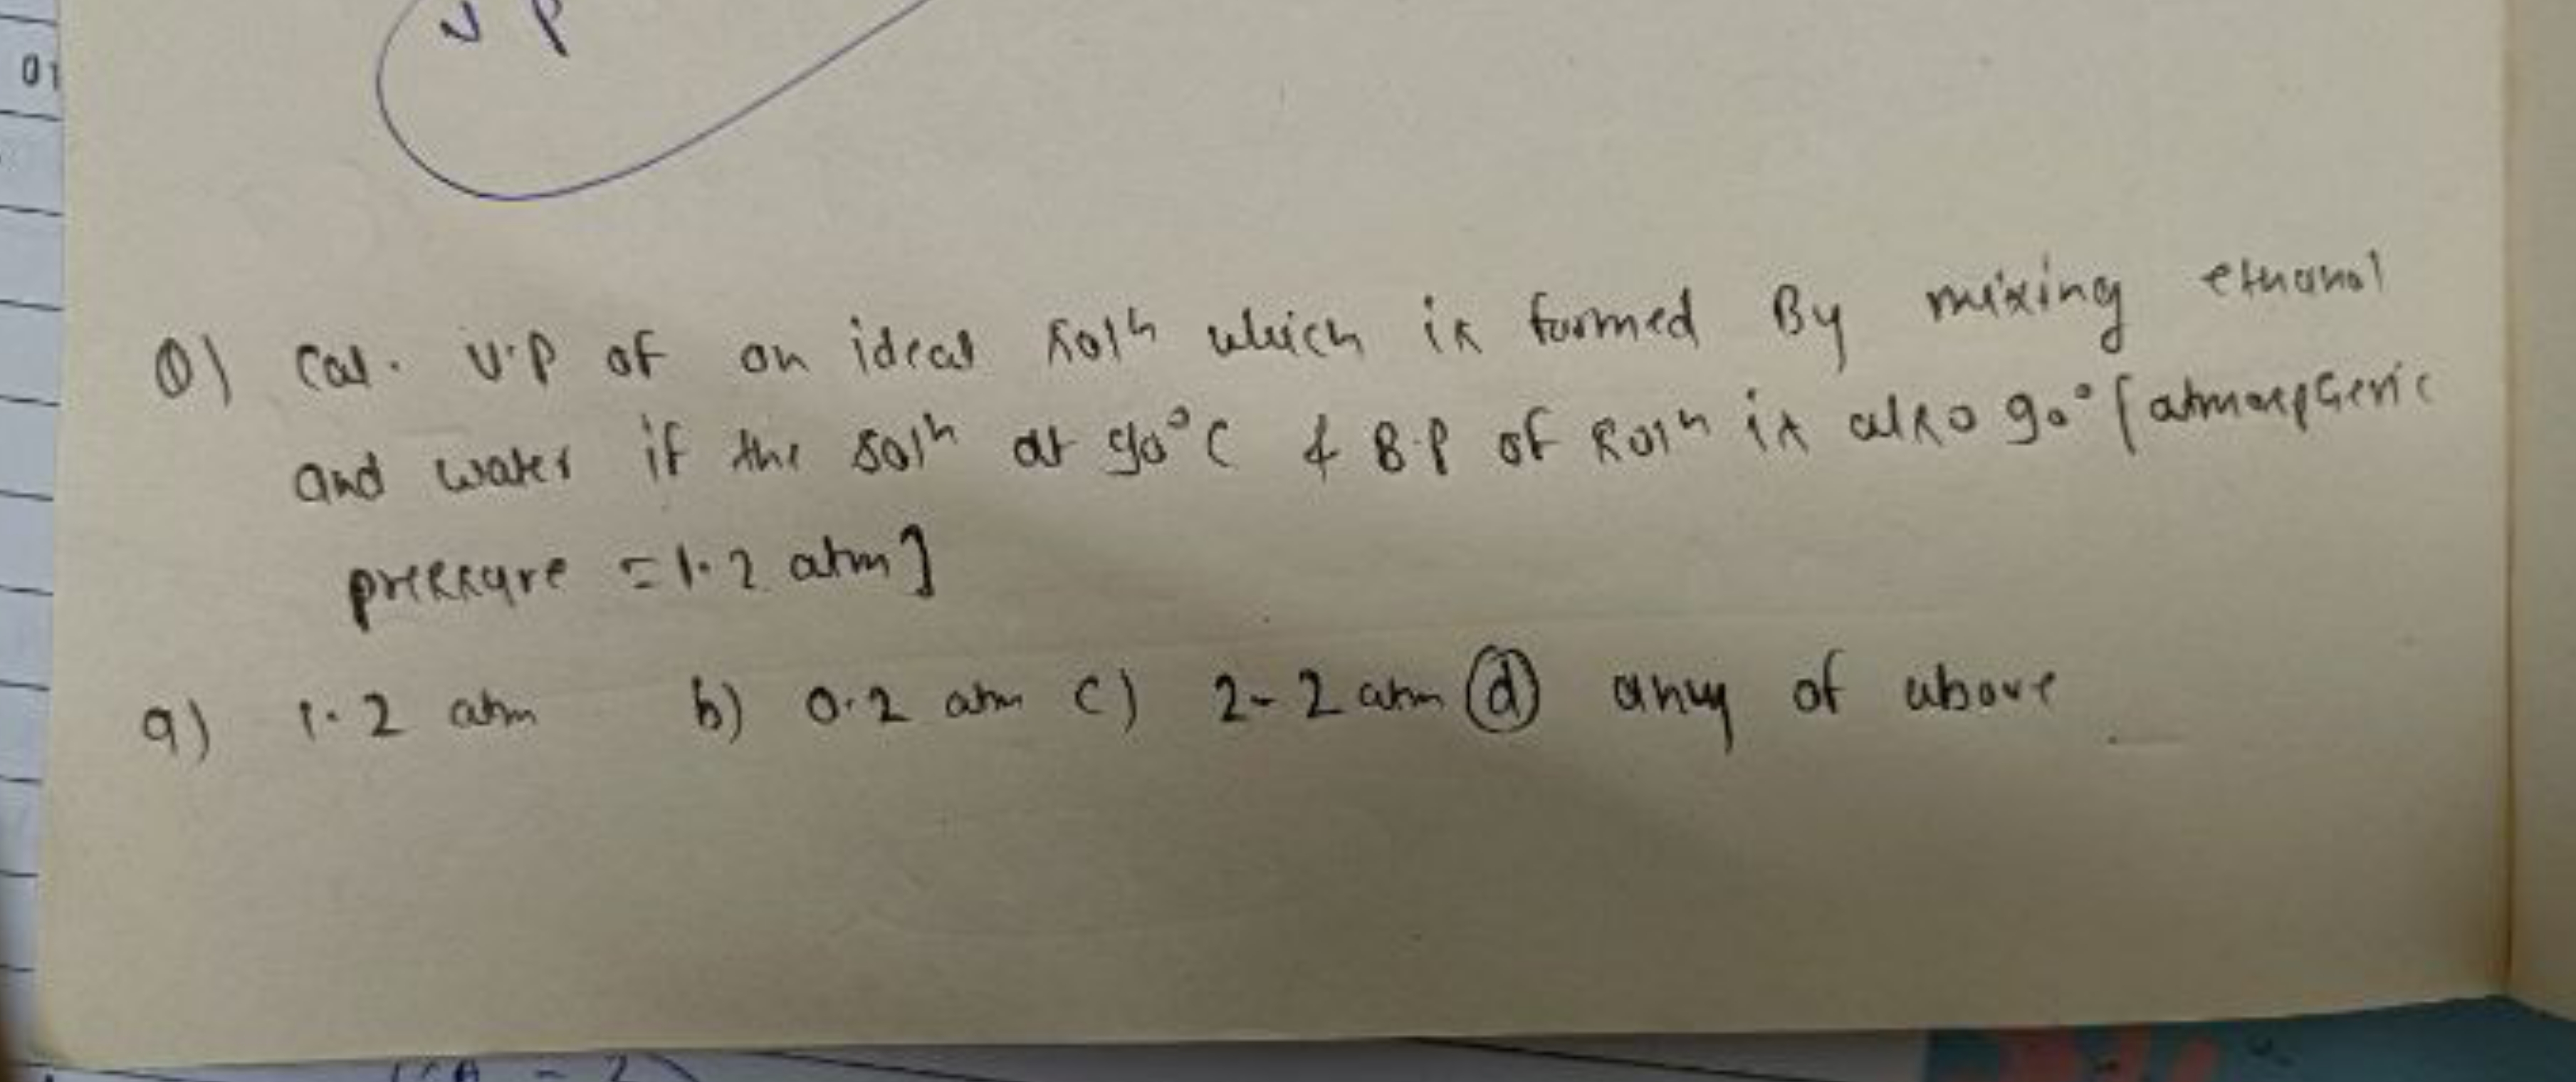 01
V P
Q) Cal. V.P of an ideal soln which is formed By mixing ethanol
and water if the soln at 90°C & B.P of soln is also 90° [atmospheric
pressure = 1.2 atm]
a) 1.2 atm b) 0.2 atm c) 2-2 atm (d) any of above